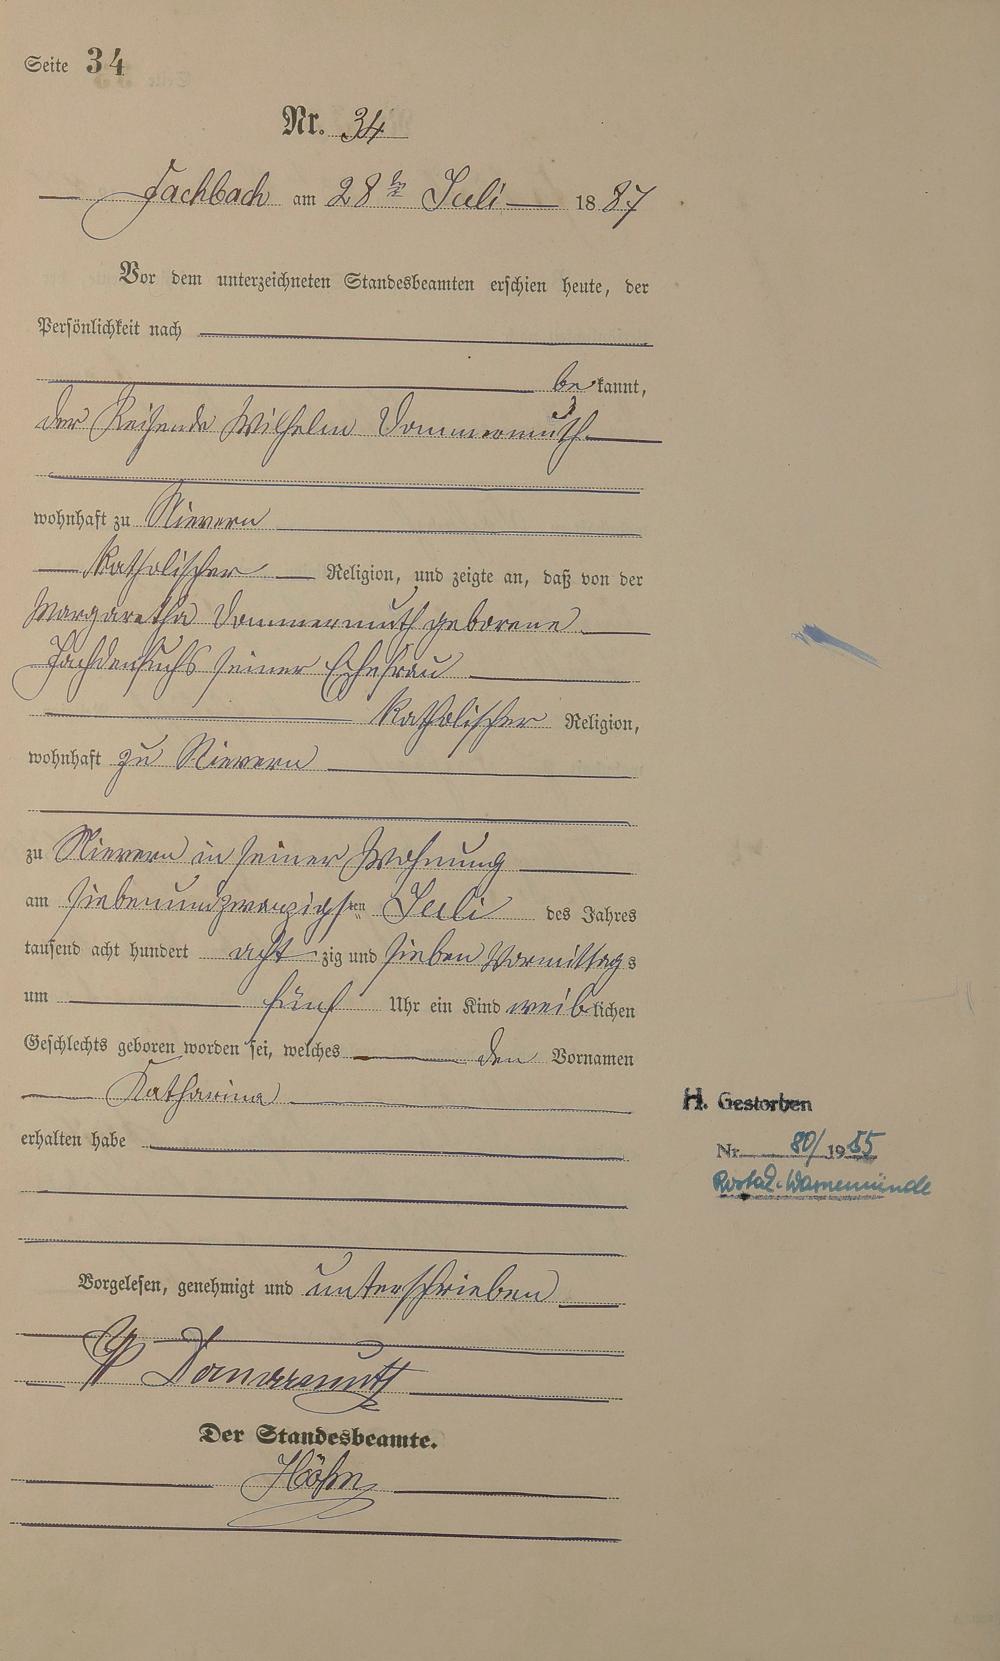 Seite 34
Nr. 34
Fachbach am 28ten Juli 1887
Vor dem unterzeichneten Standesbeamten erschien heute, der
Persönlichkeit nach
bekannt,
der Reisende Wilhelm Dommermuth
wohnhaft zu Nievern
katholischer Religion, und zeigte an, daß von der
Margaretha Dommermuth geborene
seiner Ehefrau
katholischer Religion,
wohnhaft zu Nievern
zu Nievern in seiner Wohnung
am siebenundzwanzigsten Juli des Jahres
tausend acht hundert acht zig und sieben Vormittags
um fünf Uhr ein Kind weiblichen
Geschlechts geboren worden sei, welches den Vornamen
Katharina
H. Gestorben
erhalten habe
Nr. 80/1955
Rostock-Warnemünde
Vorgelesen, genehmigt und unterschrieben
W Dommermuth
Der Standesbeamte.
Höhn